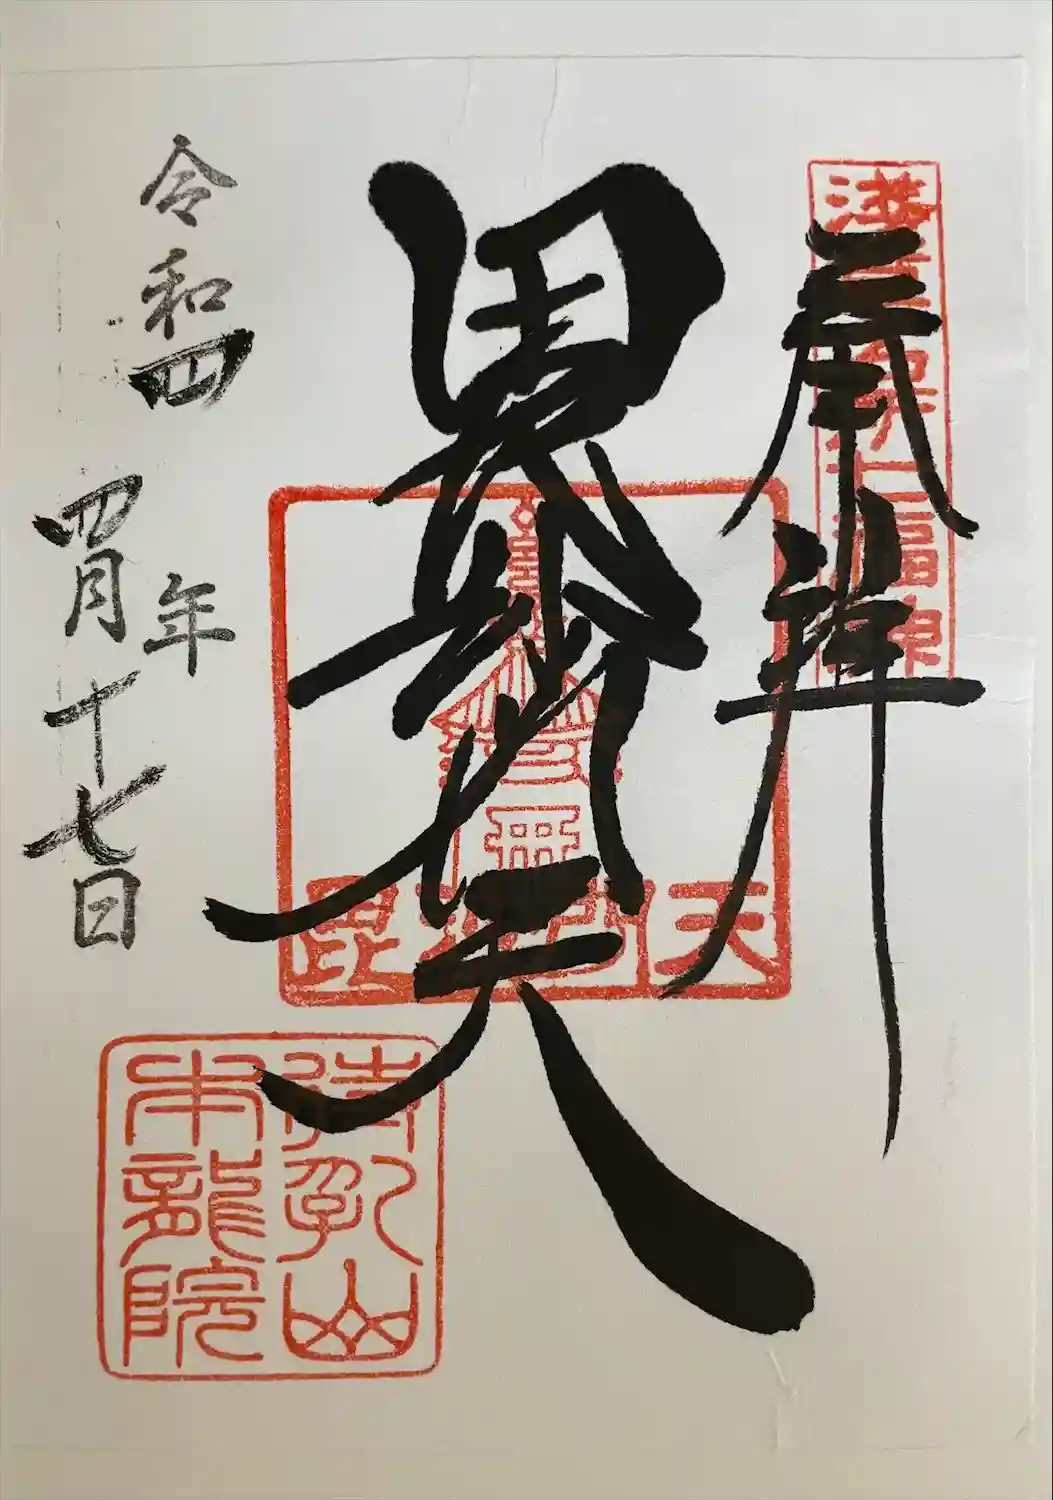 奉拝
淺草名所七福神
毘沙門天
毘沙門天
令和四年
四月十七日
待乳山
本龍院